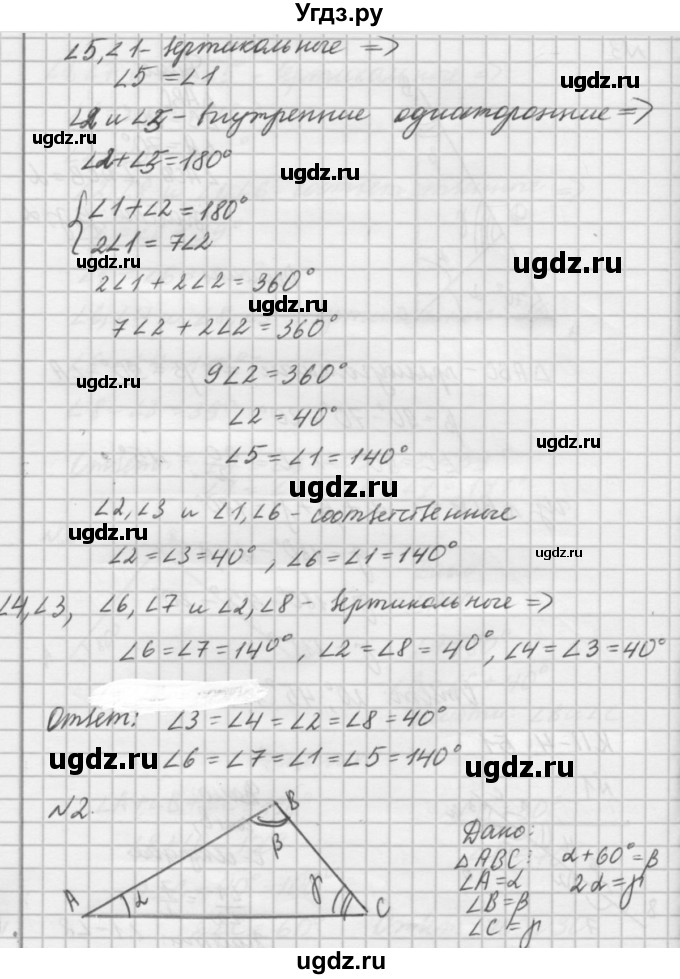 Угдз.ру
∠5, ∠1 - вертикальные =>
∠5 = ∠1
∠2 и ∠5 - внутренние односторонние =>
ugdz.ru
∠2 + ∠5 = 180°
ugdz.ru
{∠1 + ∠2 = 180°
2∠1 = 7∠2
ugdz.ru
ugdz.ru
2∠1 + 2∠2 = 360°
ugdz.ru
7∠2 + 2∠2 = 360°
9∠2 = 360°
ugdz.ru
∠2 = 40°
ugdz.ru
∠5 = ∠1 = 140°
ugdz.ru
∠2, ∠3 и ∠1, ∠6 - соответственные
ugdz.ru
∠2 = ∠3 = 40°, ∠6 = ∠1 = 140°
ugdz.ru
∠4, ∠3, ∠6, ∠7 и ∠2, ∠8 - вертикальные =>
∠6 = ∠7 = 140°, ∠2 = ∠8 = 40°, ∠4 = ∠3 = 40°
ugdz.ru
ugdz.ru
Ответ: ∠3 = ∠4 = ∠2 = ∠8 = 40°
∠6 = ∠7 = ∠1 = ∠5 = 140°
ugdz.ru
ugdz.ru
N2.
B
β
A
α
γ
C
Дано:
△ABC: α + 60° = β
∠A = α 2α = γ
∠B = β
∠C = γ
ugdz.ru
ugdz.ru